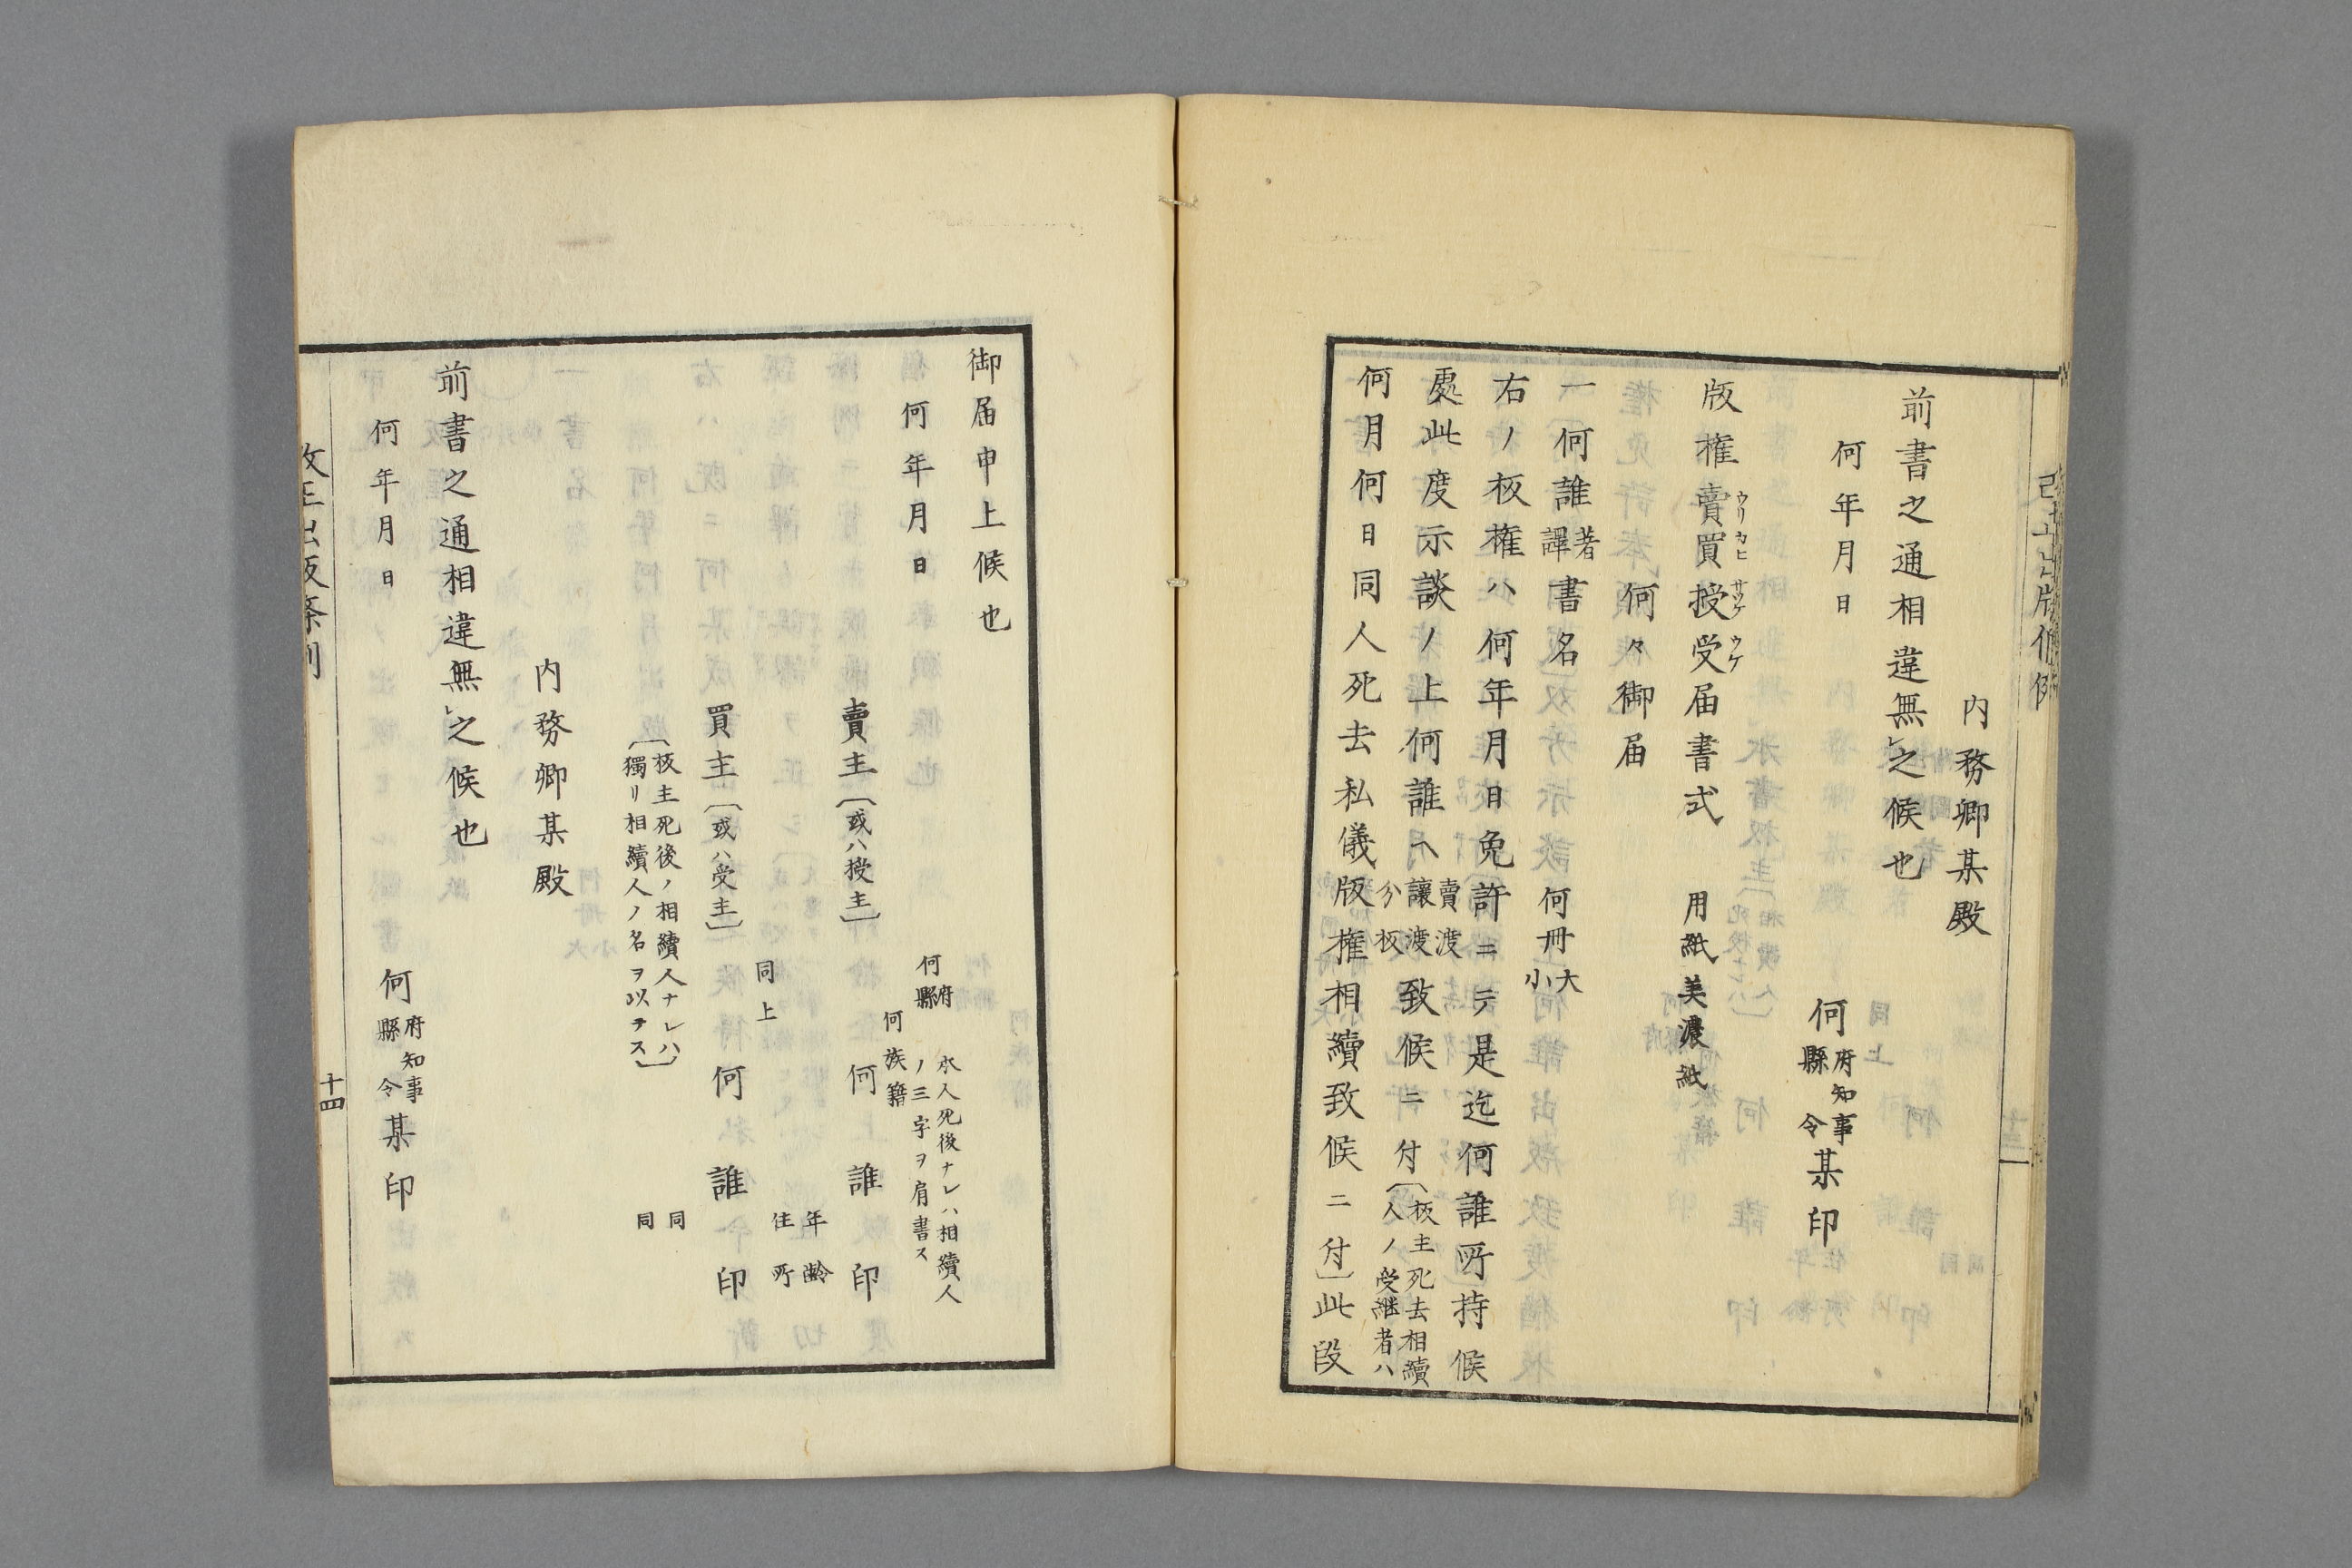 内務卿某殿
前書之通相違無レ之候也
何年月日
何府縣知事令某印
版権賣買授受届書式 用紙美濃紙
ウリカヒサヅケウケ
何々御届
一何誰著譯書名 何冊大小
右ノ板権ハ何年月日免許ニテ是迄何誰所持候
處此度示談ノ上何誰ヘ賣渡讓渡分板致候ニ付〔板主死去相續人ノ受継者ハ
何月何日同人死去私儀版権相續致候ニ付〕此段
御届申上候也
何年月日
本人死後ナレハ相續人ノ三字ヲ肩書ス
何府縣
何族籍
賣主〔或ハ授主〕 何誰印
年齢
住所
同上
買主〔或ハ受主〕 何誰印
〔板主死後ノ相續人ナレハ獨リ相續人ノ名ヲ以テス〕
同
同
内務卿某殿
前書之通相違無レ之候也
何年月日
何府縣知事令某印
改正出版条例
十四